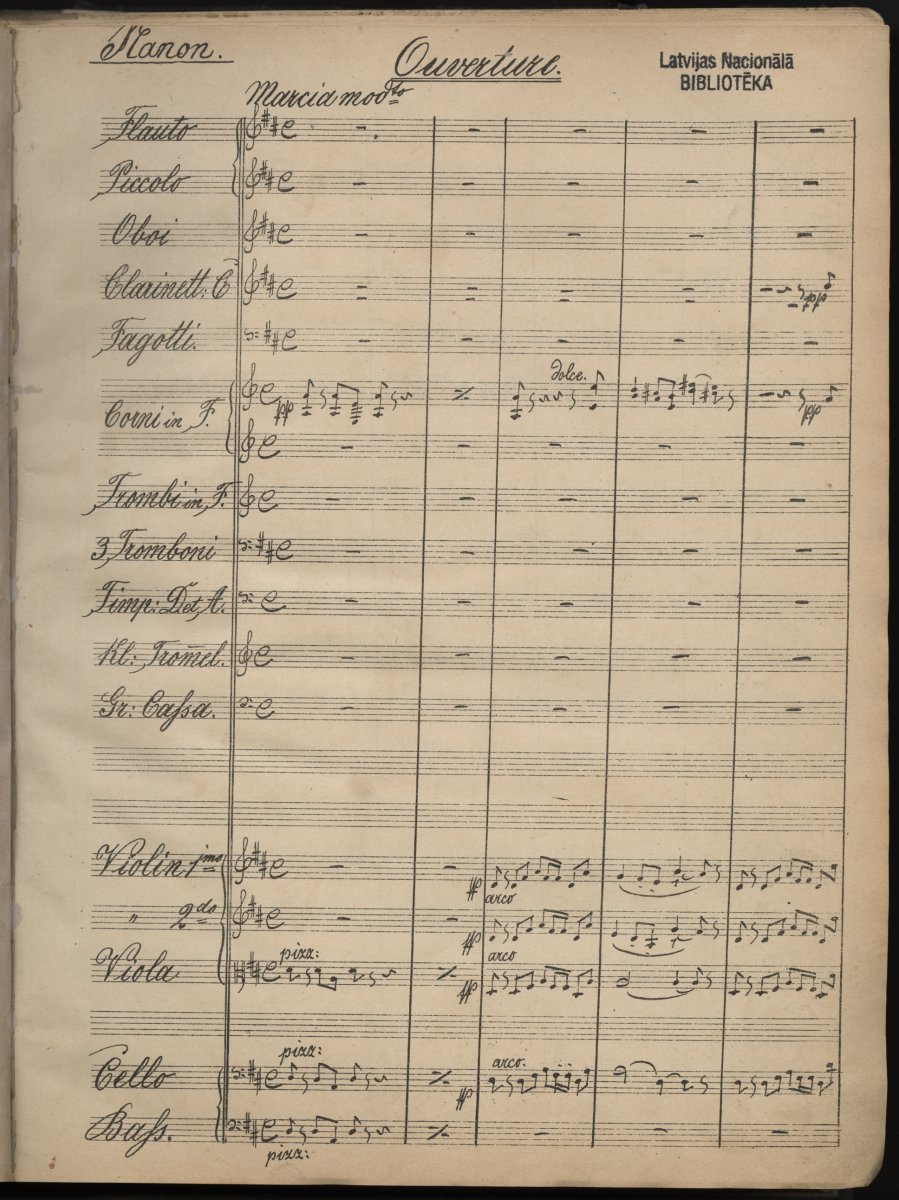 Manon.
Ouverture.
Latvijas Nacionālā
BIBLIOTĒKA
Marcia modto
Flauto
Piccolo
Oboi
Clarinett: C
Fagotti.
dolce.
Corni in F.
pp
pp
Trombi in F.
3 Tromboni
Timp: D et A.
Kl: Trom̄el.
Gr: Caſsa.
Violin 1mo
arco
" 2do
arco
pizz:
Viola
pizz:
arco.
Cello
Baſs.
pizz: